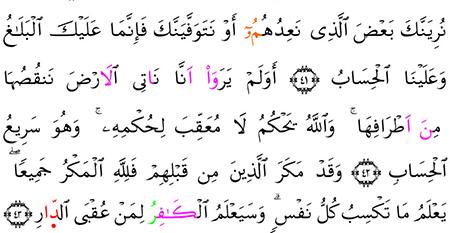 نُرِيَنَّكَ بَعْضَ ٱلَّذِى نَعِدُهُمُۥٓ أَوْ نَتَوَفَّيَنَّكَ فَإِنَّمَا عَلَيْكَ ٱلْبَلَٰغُ
وَعَلَيْنَا ٱلْحِسَابُ ۝٤١ أَوَلَمْ يَرَوَاْ اَنَّا نَاتِى اِ۬لَارْضَ نَنقُصُهَا
مِنَ اَطْرَافِهَاۚ وَٱللَّهُ يَحْكُمُ لَا مُعَقِّبَ لِحُكْمِهِۦۚ وَهُوَ سَرِيعُ
ٱلْحِسَابِ ۝٤٢ وَقَدْ مَكَرَ ٱلَّذِينَ مِن قَبْلِهِمْ فَلِلَّهِ ٱلْمَكْرُ جَمِيعًاۖ
يَعْلَمُ مَا تَكْسِبُ كُلُّ نَفْسٍۗ وَسَيَعْلَمُ ٱلْكَٰفِرُ لِمَنْ عُقْبَى ٱلدِّارِ ۝٤٣